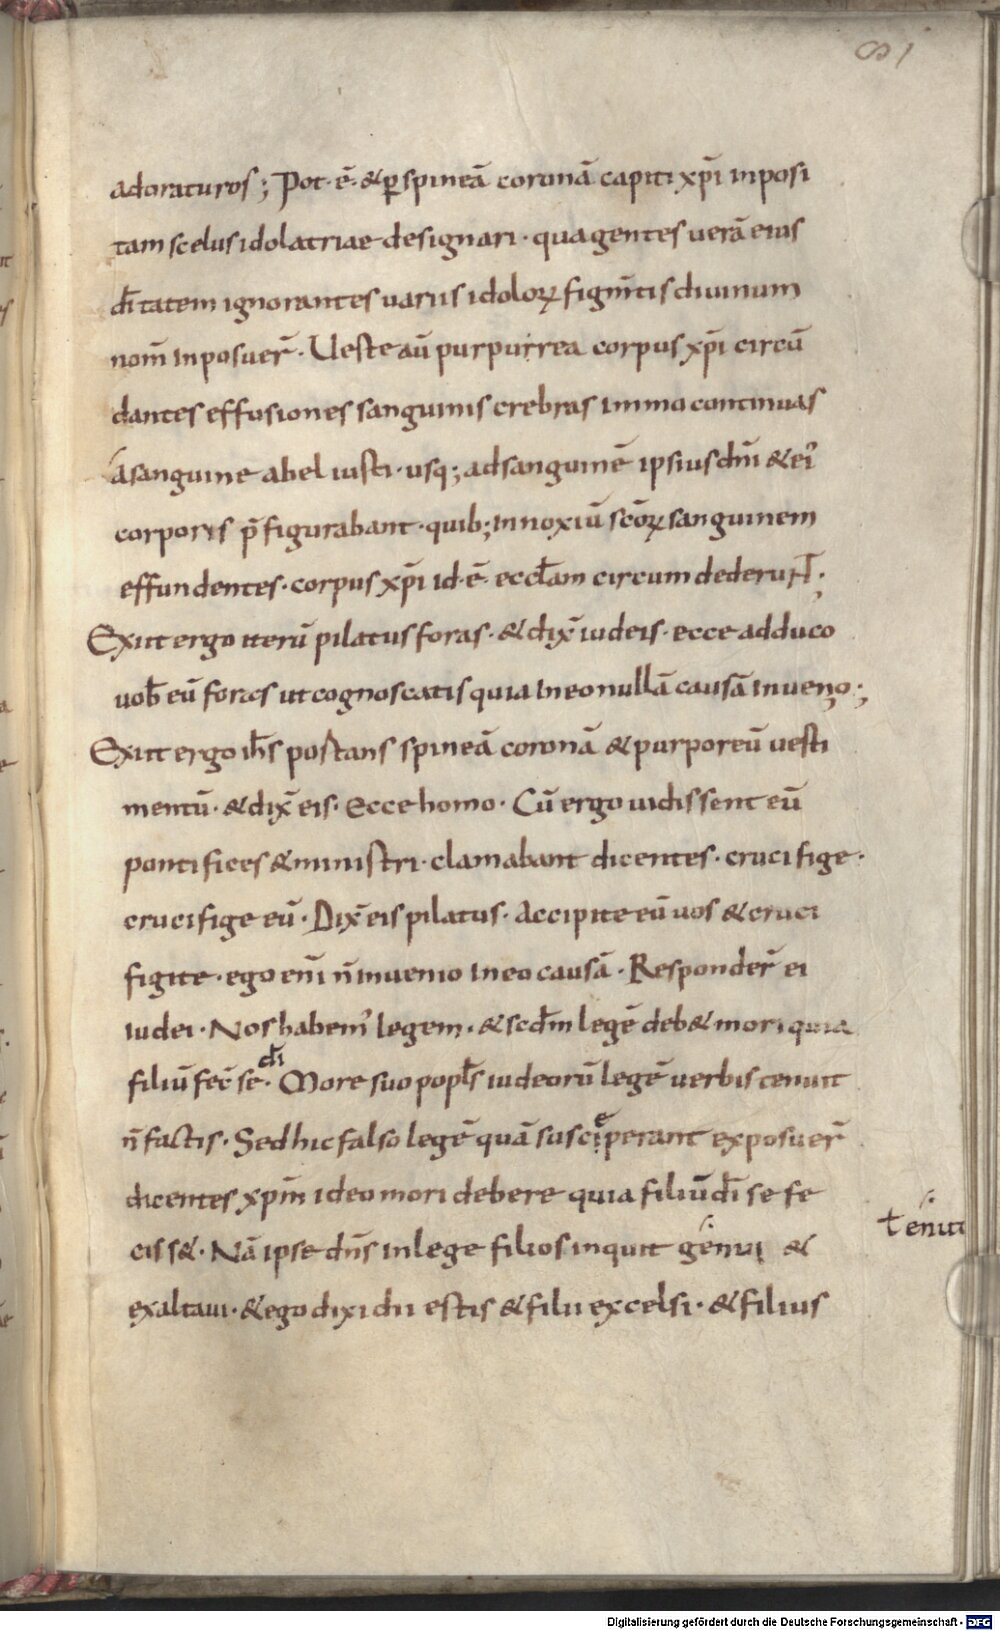 81
adoraturos; Pot· ē· & p̲ spineā coronā capiti xp̄i inposi
tam scelus idolatriae designari· qua gentes uerā eius
dı̄tatem ignorantes uariis idoloꝝ figm̄tis diuinum
nom̄ inposuer̄· Ueste aū purpurrea corpus xp̄i circū
dantes effusiones sanguinis crebras immo continuas
a sanguine abel iusti· usq; ad sanguinē ipsius dn̄i & ei᾽
corporis p̄figurabant· quib; innoxiū sc̄oꝝ sanguinem
effundentes· corpus xp̄i id· ē· eccl̄am circumdederuNT;
Exiit ergo iterū pilatus foras· & dix̄ iudeis· ecce adduco
uob̄ eū foras ut cognoscatis quia in eo nullā causā inuenio;
Exiit ergo ih̄s portans spineā coronā & purporeū uesti
mentū· & dix̄ eis· Ecce homo· Cū ergo uidissent eū
pontifices & ministri· clamabant dicentes· crucifige·
crucifige eū· Dix̄ eis pilatus· Accipite eū uos & cruci
figite· ego eni̅ n̄ inuenio in eo causā· Responder̄ ei
iudei· Nos habem᾽ legem· & scd̄m legē deb& mori quia
filiū fec̄ se· dı̄ More suo popl̄s iudeorū legē uerbis tenuit
n̄ factis· Sed hic falso legē quā suscieperant exposuer̄
dicentes xp̄m ideo mori debere quia filiū dı̄ se fe
ciss&· Nā ipse dn̄s in lege filios inquit genui &
tenuit
exaltaui· & ego dixi dii estis & filii excelsi· & filius
Digitalisierung gefördert durch die Deutsche Forschungsgemeinschaft - DFG